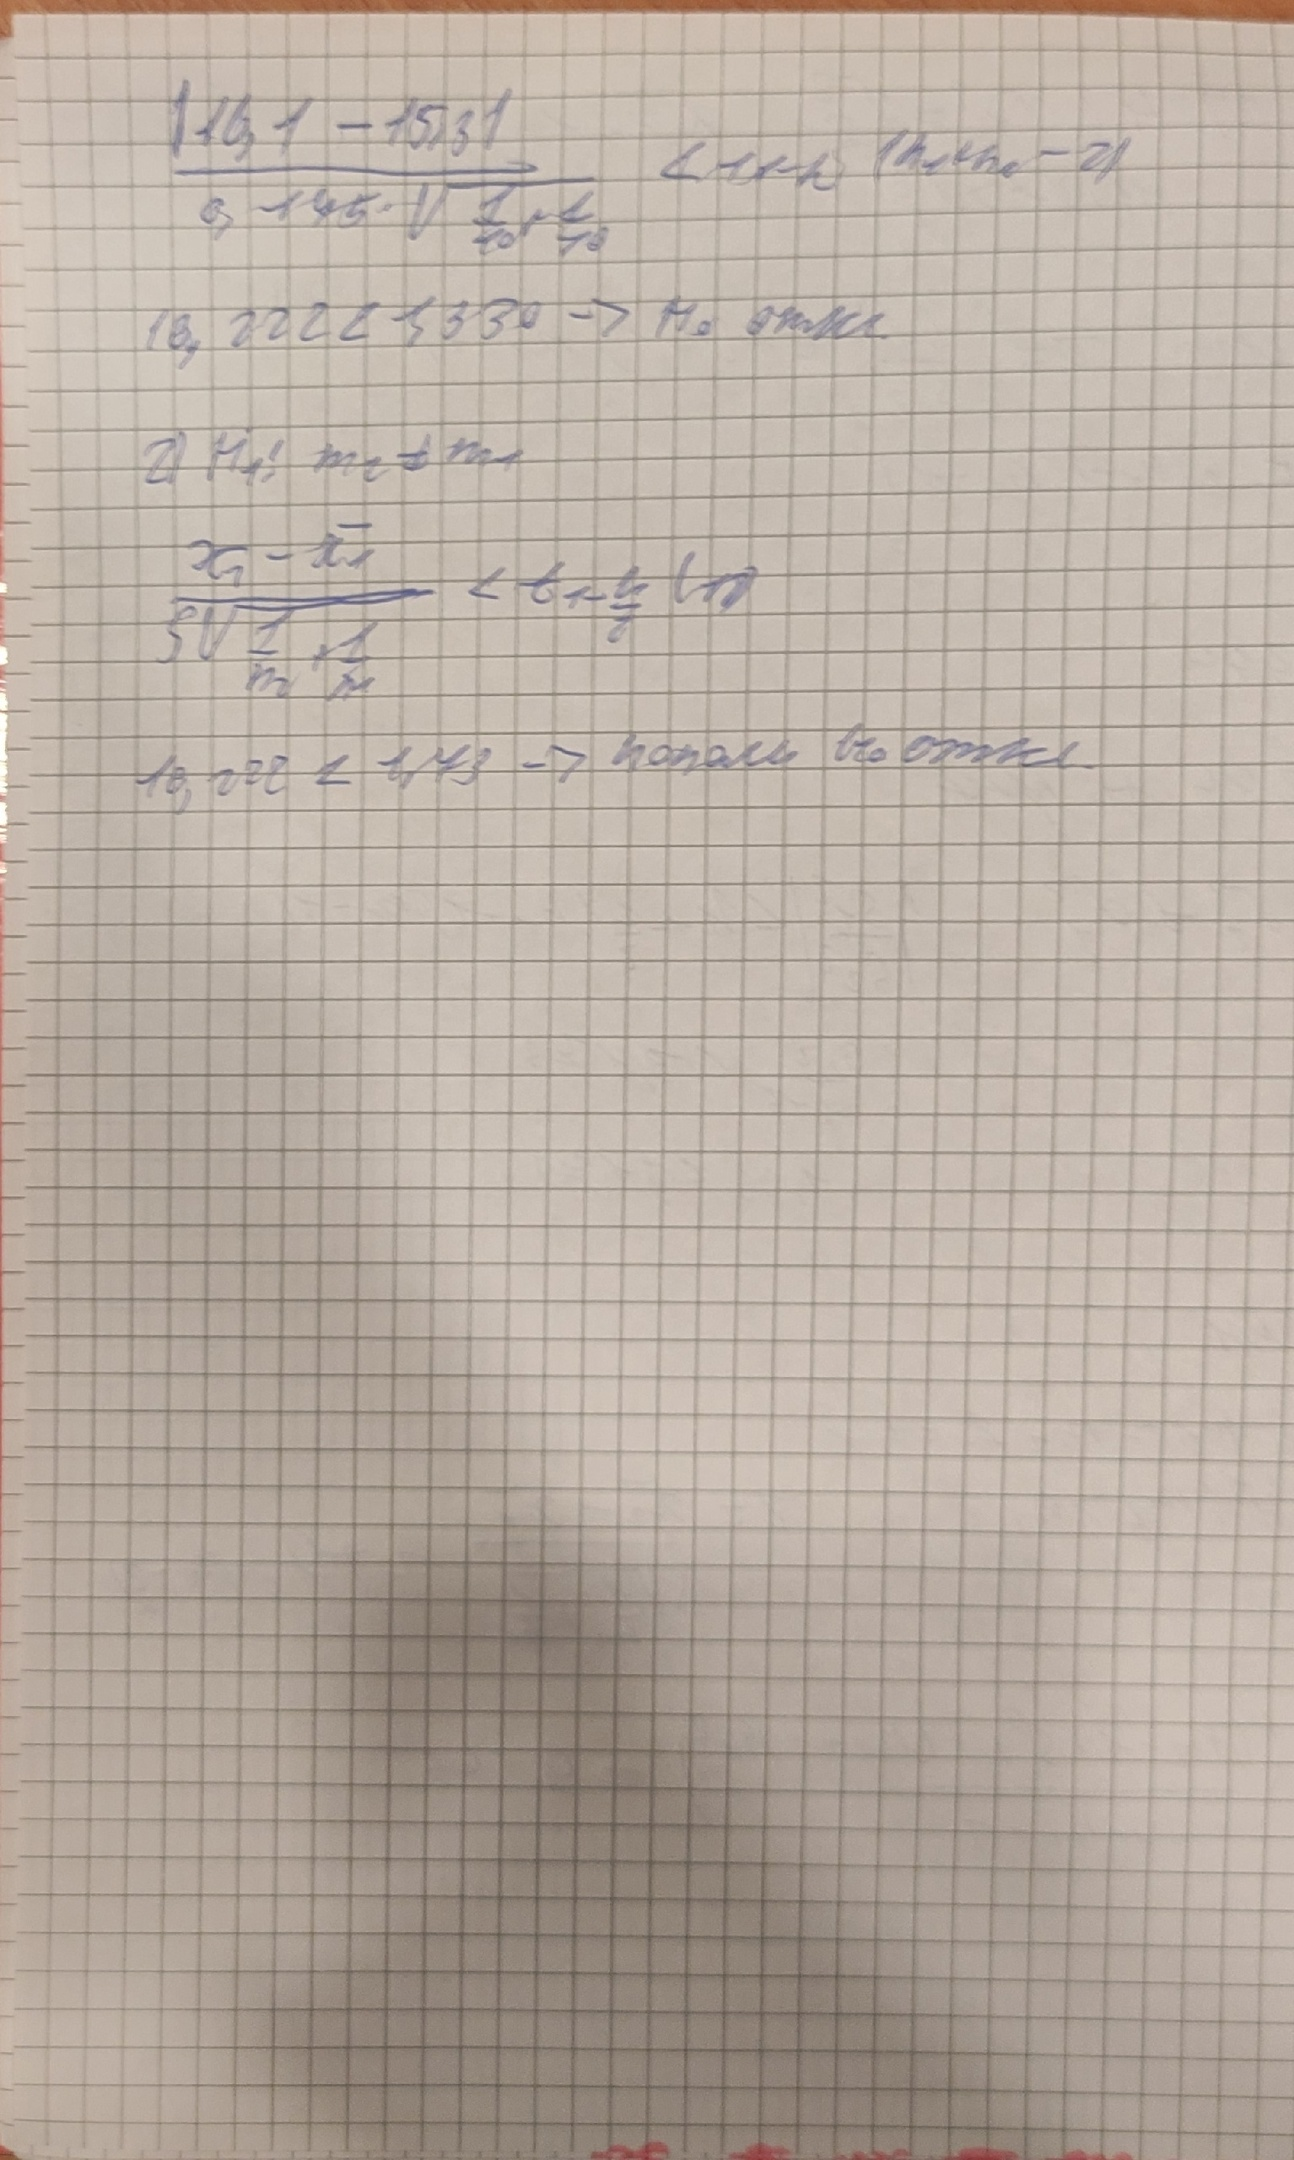 |16,1 - 15,3|
0,175·√(1/10 + 1/10) < t1-α (n1+n2 - 2)
10,222 < 1,330 -> H0 откл
2) H1: m2 ≠ m1
x̄2 - x̄1
S√(1/n2 + 1/n1) < t1-α/2 (18)
10,222 < 1,73 -> H0 откл.